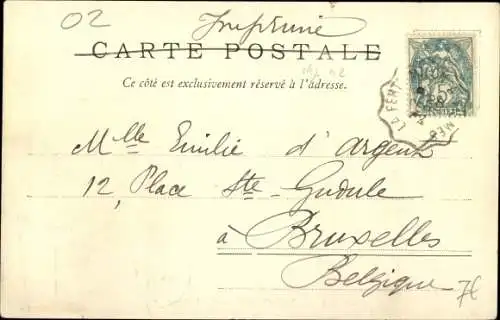 02
Imprimé
CARTE POSTALE
02
Ce côté est exclusivement réservé à l'adresse.
5
LA FERT
Mlle Emilie d'Argent
12, Place Ste-Gudule
à Bruxelles
Belgique
7E